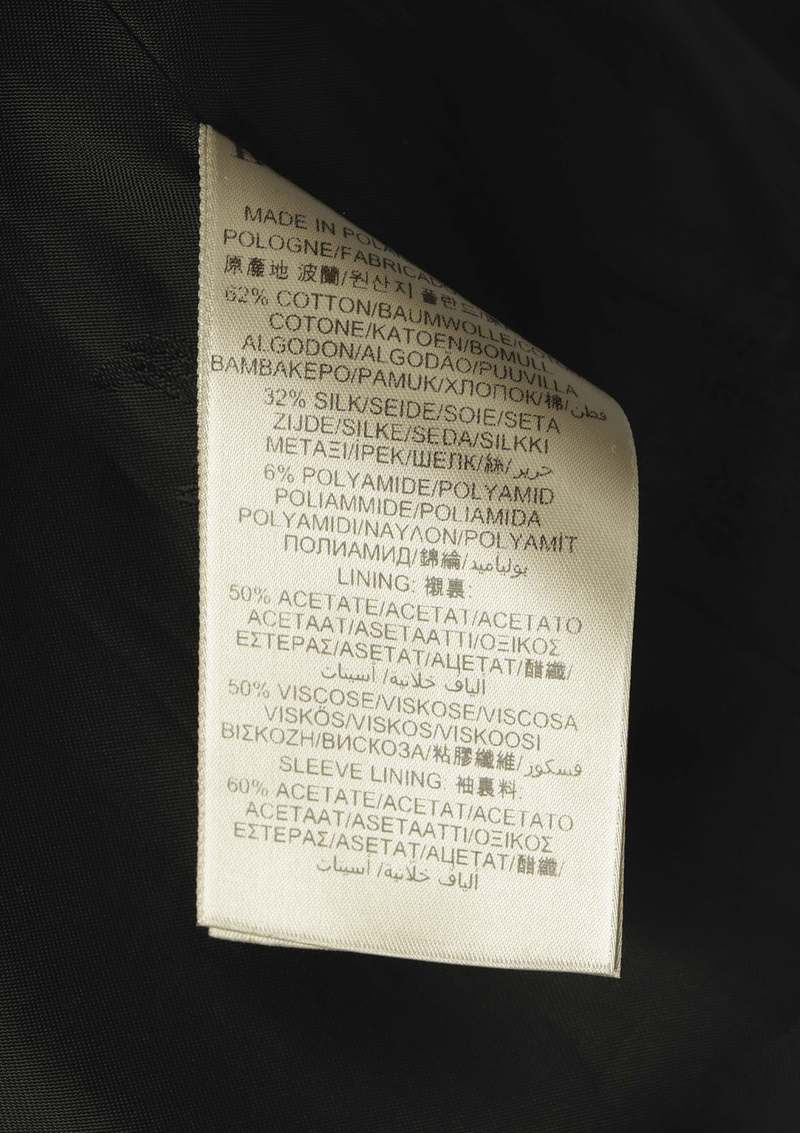 MADE IN
POLOGNE/FABRICADO
原產地 波蘭/원산지 폴란드/
62% COTTON/BAUMWOLLE/COTON
COTONE/KATOEN/BOMULL
ALGODON/ALGODÃO/PUUVILLA
ΒΑΜΒΑΚΕΡΟ/PAMUK/ХЛОПОК/棉/قطن
32% SILK/SEIDE/SOIE/SETA
ZIJDE/SILKE/SEDA/SILKKI
ΜΕΤΑΞΙ/İPEK/ШЕЛК/絲/حرير
6% POLYAMIDE/POLYAMID
POLIAMMIDE/POLIAMIDA
POLYAMIDI/ΝΑΥΛΟΝ/POLYAMİT
ПОЛИАМИД/錦綸/بولياميد
LINING: 襯裏:
50% ACETATE/ACETAT/ACETATO
ACETAAT/ASETAATTI/ΟΞΙΚΟΣ
ΕΣΤΕΡΑΣ/ASETAT/АЦЕТАТ/醋纖/
الياف خلانية/ أسيتات
50% VISCOSE/VISKOSE/VISCOSA
VISKÖS/VISKOS/VISKOOSI
ΒΙΣΚΟΖΗ/ВИСКОЗА/粘膠纖維/فسكوز
SLEEVE LINING: 袖裏料:
60% ACETATE/ACETAT/ACETATO
ACETAAT/ASETAATTI/ΟΞΙΚΟΣ
ΕΣΤΕΡΑΣ/ASETAT/АЦЕТАТ/醋纖/
الياف خلانية/ أسيتات